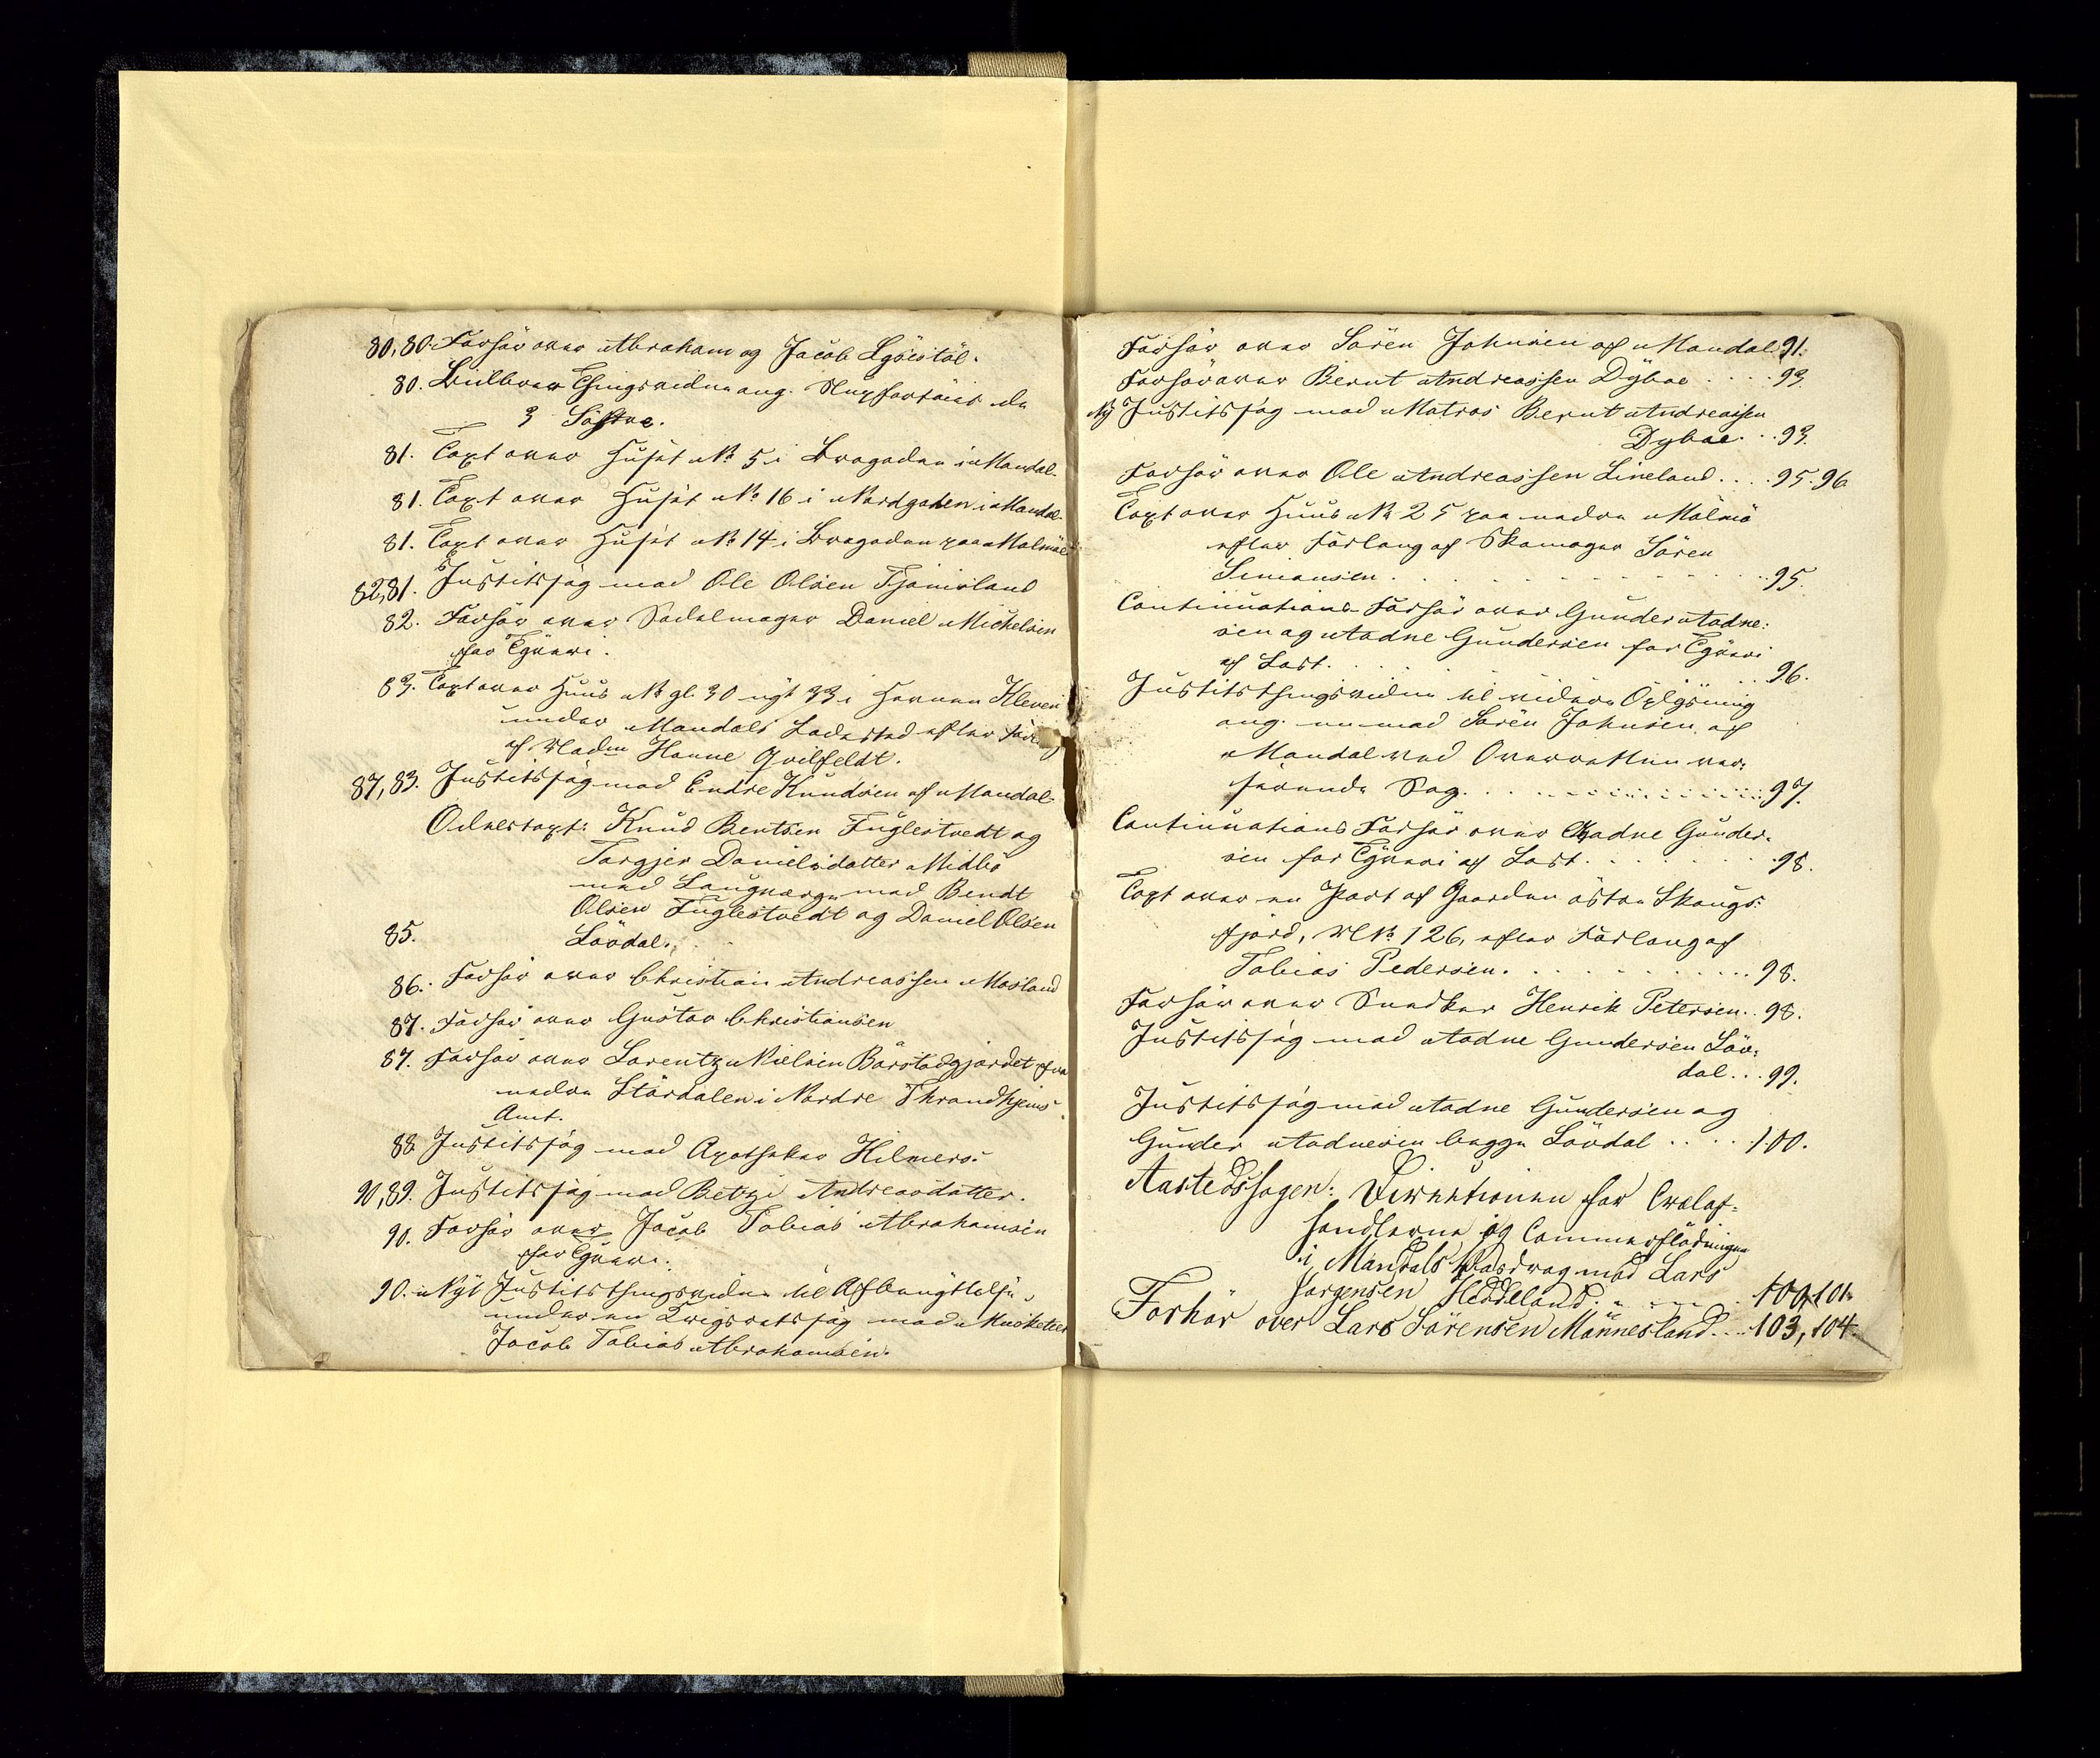 80, 80. Forhör over Abraham og Jacob Lÿsestöl.
80. Thingsvidne ang. Skipsfartöiet de
3 Söstre.
81. Taxt over Huset No 5 i Bragaden i Mandal.
81. Taxt over Huset No 16 i Nordgaden i Mandal
81. Taxt over Huset No 14 i Bragaden paa Malmöe
82, 81. Justitssag mod Ole Olsen
82. Forhör over Sadelmager Daniel Michelsen
for Tÿveri.
83. Taxt over Huus No gl. 30 nÿt 33 i Havnen Kleven
under Mandals Ladested efter
af Madm Hanne Qvilfeldt.
87, 83. Justitssag mod Endre Knudsen af Mandal.
Odelstaxt: Knud Bentsen Fuglestvedt og
Torgjer Danielsdatter Midbö
med Laugværge mod Bendt
Olsen Fuglestvedt og Daniel Olsen
85. Lövdal.
86. Forhör over Christian Andreassen Mosland
87. Forhör over Gustav Christiansen
87. Forhör over Lorentz Nielsen Börstadgjordet fra
nedre Stördalen i Nordre Throndhjems
Amt.
88 Justitssag mod Apotheker Hilmers.
90, 89. Justitssag mod Betzi Andreasdatter.
90. Forhör over Jacob Tobias Abrahamsen
for Tÿveri.
90. Nÿt Justitsthingsvidne til Afbenÿttelse
under en Krigsretssag mod Musketeer
Jacob Tobias Abrahamsen.
Forhör over Sören Johnsen af Mandal 91.
Forhör over Bernt Andreassen Dÿboe . . . . 93.
Nÿ Justitssag mod Matros Bernt Andreassen
Dÿboe. . . 93.
Forhör over Ole Andreassen Lineland. . . . 95. 96
Taxt over Huus No 25 paa nedre Malmö
efter Forlang af Skomager Sören
Simonsen . . . . . . 95.
Continuations-Forhör over Gunder Aadne:
sen og Aadne Gundersen for Tÿveri
af Last. . . . . . 96.
Justitsthingsvidne til videre Oplÿsning
ang. en mod Sören Johnsen af
Mandal ved Overretten ver:
serende Sag. . . . . . 97.
Continuations Forhör over Aadne Gunder.
sen for Tÿveri af Last. . . . . . 98.
Taxt over en Part af Gaarden östre Skougs:
fjord, MNo 126, efter Forlang af
Tobias Pedersen. . . . . . 98.
Forhör over Snedker Henrik Petersen. . 98.
Justitssag mod Aadne Gundersen Löv:
dal . . . 99.
Justitssag mod Aadne Gundersen og
Gunder Aadnesen begge Lövdal . . . . 100.
Aastedssagen: Directionen for Trælast-
handlerne og Tømmerflödningen
i Mandals Vasdrag mod Lars
Jorgensen Heddeland. . . . 100, 101.
Forhör over Lars Sörensen Mönnesland. . . 103, 104.